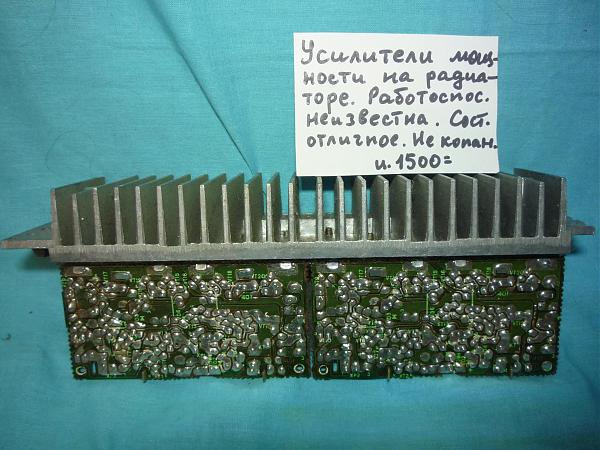 Усилители мощ-
ности на радиа-
торе. Работоспос.
неизвестна. Сост.
отличное. Не копан.
ц. 1500=